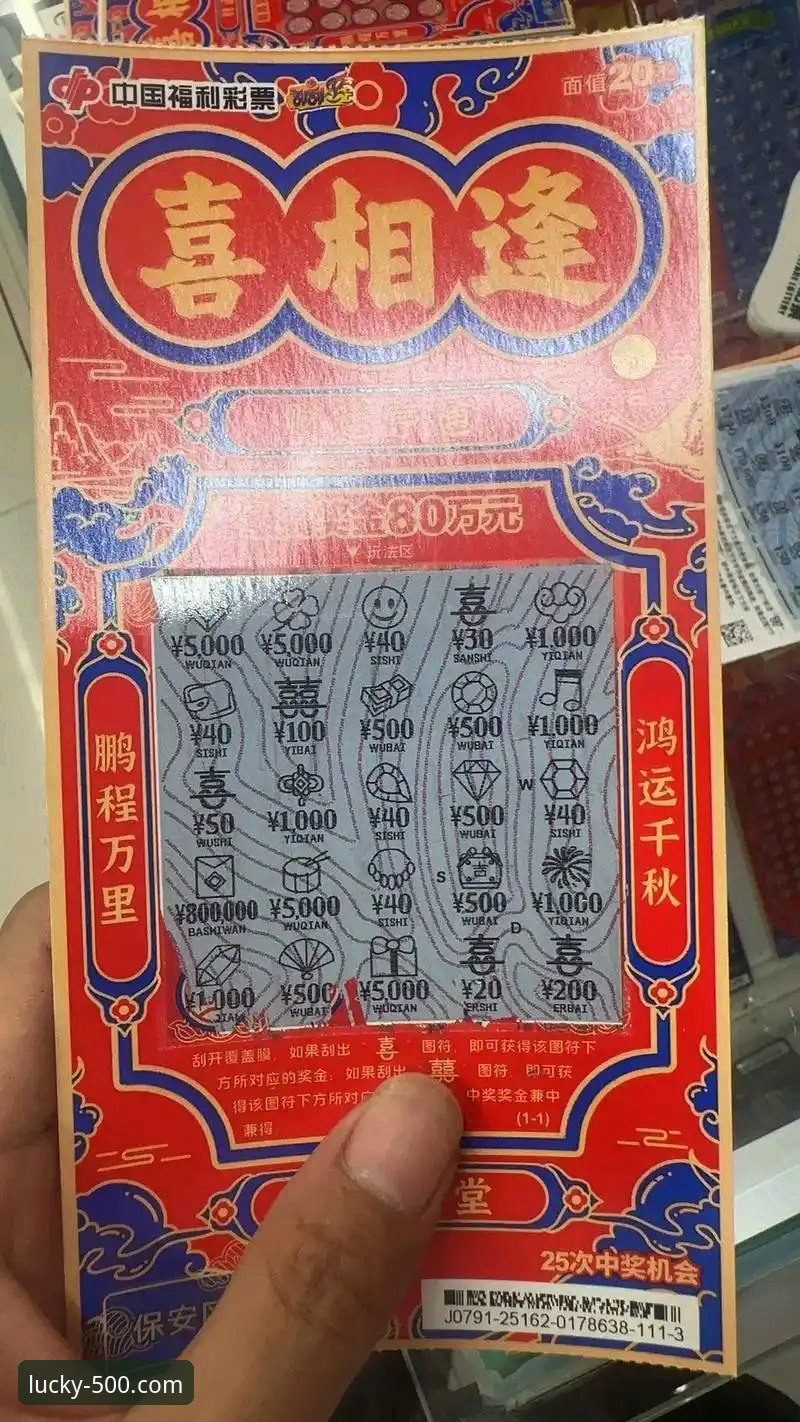 中国福利彩票 刮刮乐
面值20元
喜相逢
奖金80万元
▼玩法区
¥5,000 ¥5,000 ¥40 喜 ¥30 ¥1,000
WUQIAN WUQIAN SISHI SANSHI YIQIAN
¥40 囍 ¥100 ¥500 ¥500 ¥1,000
SISHI YIBAI WUBAI WUBAI YIQIAN
喜 ¥50 ¥1,000 ¥40 ¥500 W ¥40
WUSHI YIQIAN SISHI WUBAI SISHI
¥800,000 ¥5,000 ¥40 S 吉 ¥500 ¥1,000
BASHIWAN WUQIAN SISHI WUBAI YIQIAN
D
¥1,000 ¥500 ¥5,000 喜 ¥20 喜 ¥200
QIAN WUBAI WUQIAN ERSHI ERBAI
鹏程万里
鸿运千秋
刮开覆盖膜，如果刮出 喜 图符，即可获得该图符下
方所对应的奖金；如果刮出 囍 图符，即可获
得该图符下方所对 中奖奖金兼中
兼得 (1-1)
堂
25次中奖机会
保安
J0791-25162-0178638-111-3
lucky-500.com